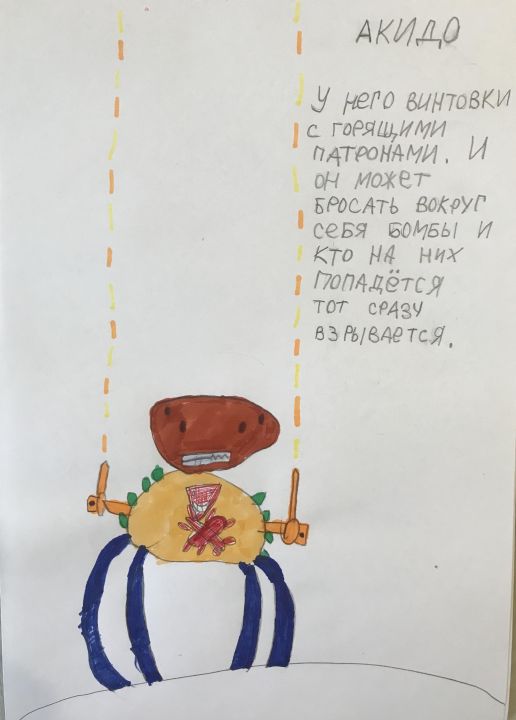 АКИДО
У него винтовки
с горящими
патронами. И
он может
бросать вокруг
себя бомбы и
кто на них
попадётся
тот сразу
взрывается.